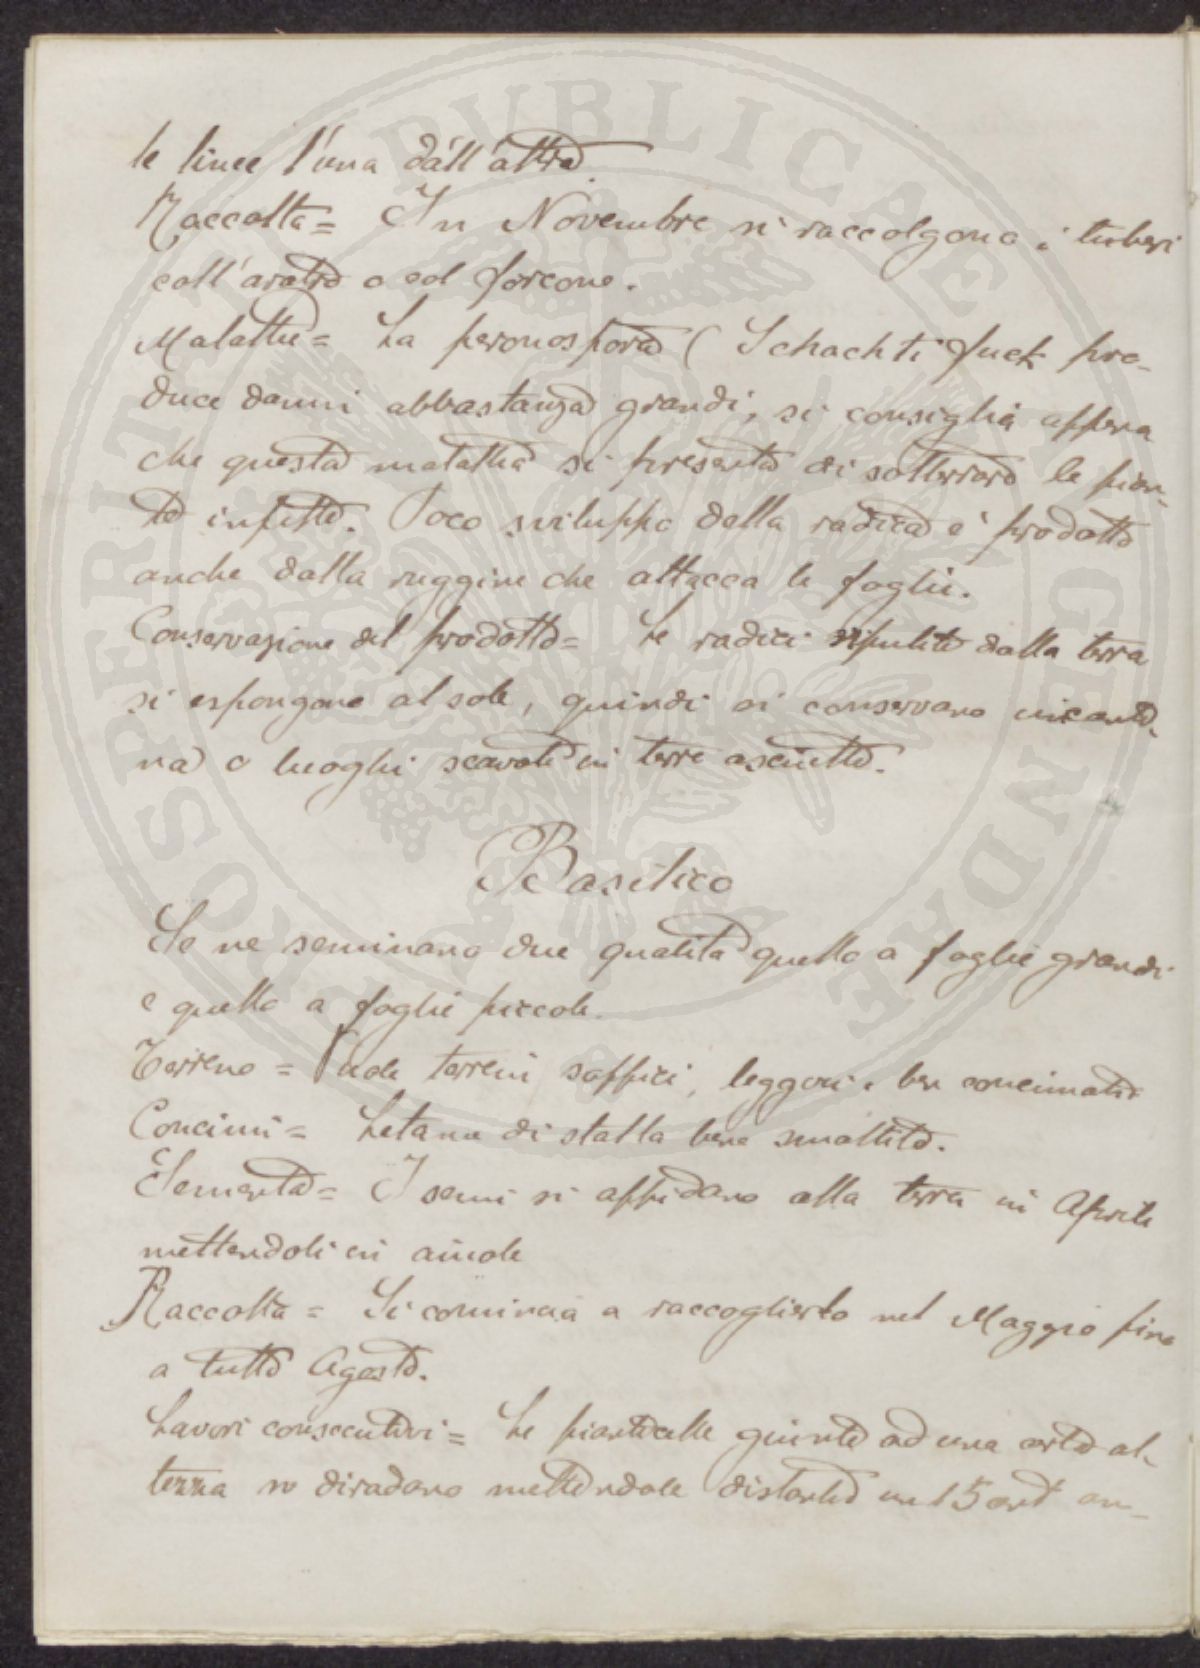 le linee l'una dall'altra.
Raccolta = In Novembre si raccolgono i tuberi
coll'aratro o col forcone.
Malattie = La peronospora (Schachti Fuck pro-
duce danni abbastanza grandi, si consiglia appena
che questa malattia si presenta di sotterrare le pian-
te infette. Poco sviluppo della radica è prodotto
anche dalla ruggine che attacca le foglie.
Conservazione del prodotto = Le radici ripulite dalla terra
si espongono al sole, quindi si conservano in canti-
na o luoghi scavati in terre asciutte.
Basilico
Se ne seminano due qualità quello a foglie grandi
e quello a foglie piccole.
Terreno = Vuole terreni soffici, leggeri e ben concimati
Concimi = Letame di stalla bene smaltito.
Sementa = I semi si affidano alla terra in Aprile
mettendoli in aiuole
Raccolta = Si comincia a raccoglierlo nel Maggio fino
a tutto Agosto.
Lavori consecutivi = Le pianticelle giunte ad una certa al-
tezza si diradano mettendole distanti un 15 cent an-
PROSPERITATI PUBLICAE AUGENDAE